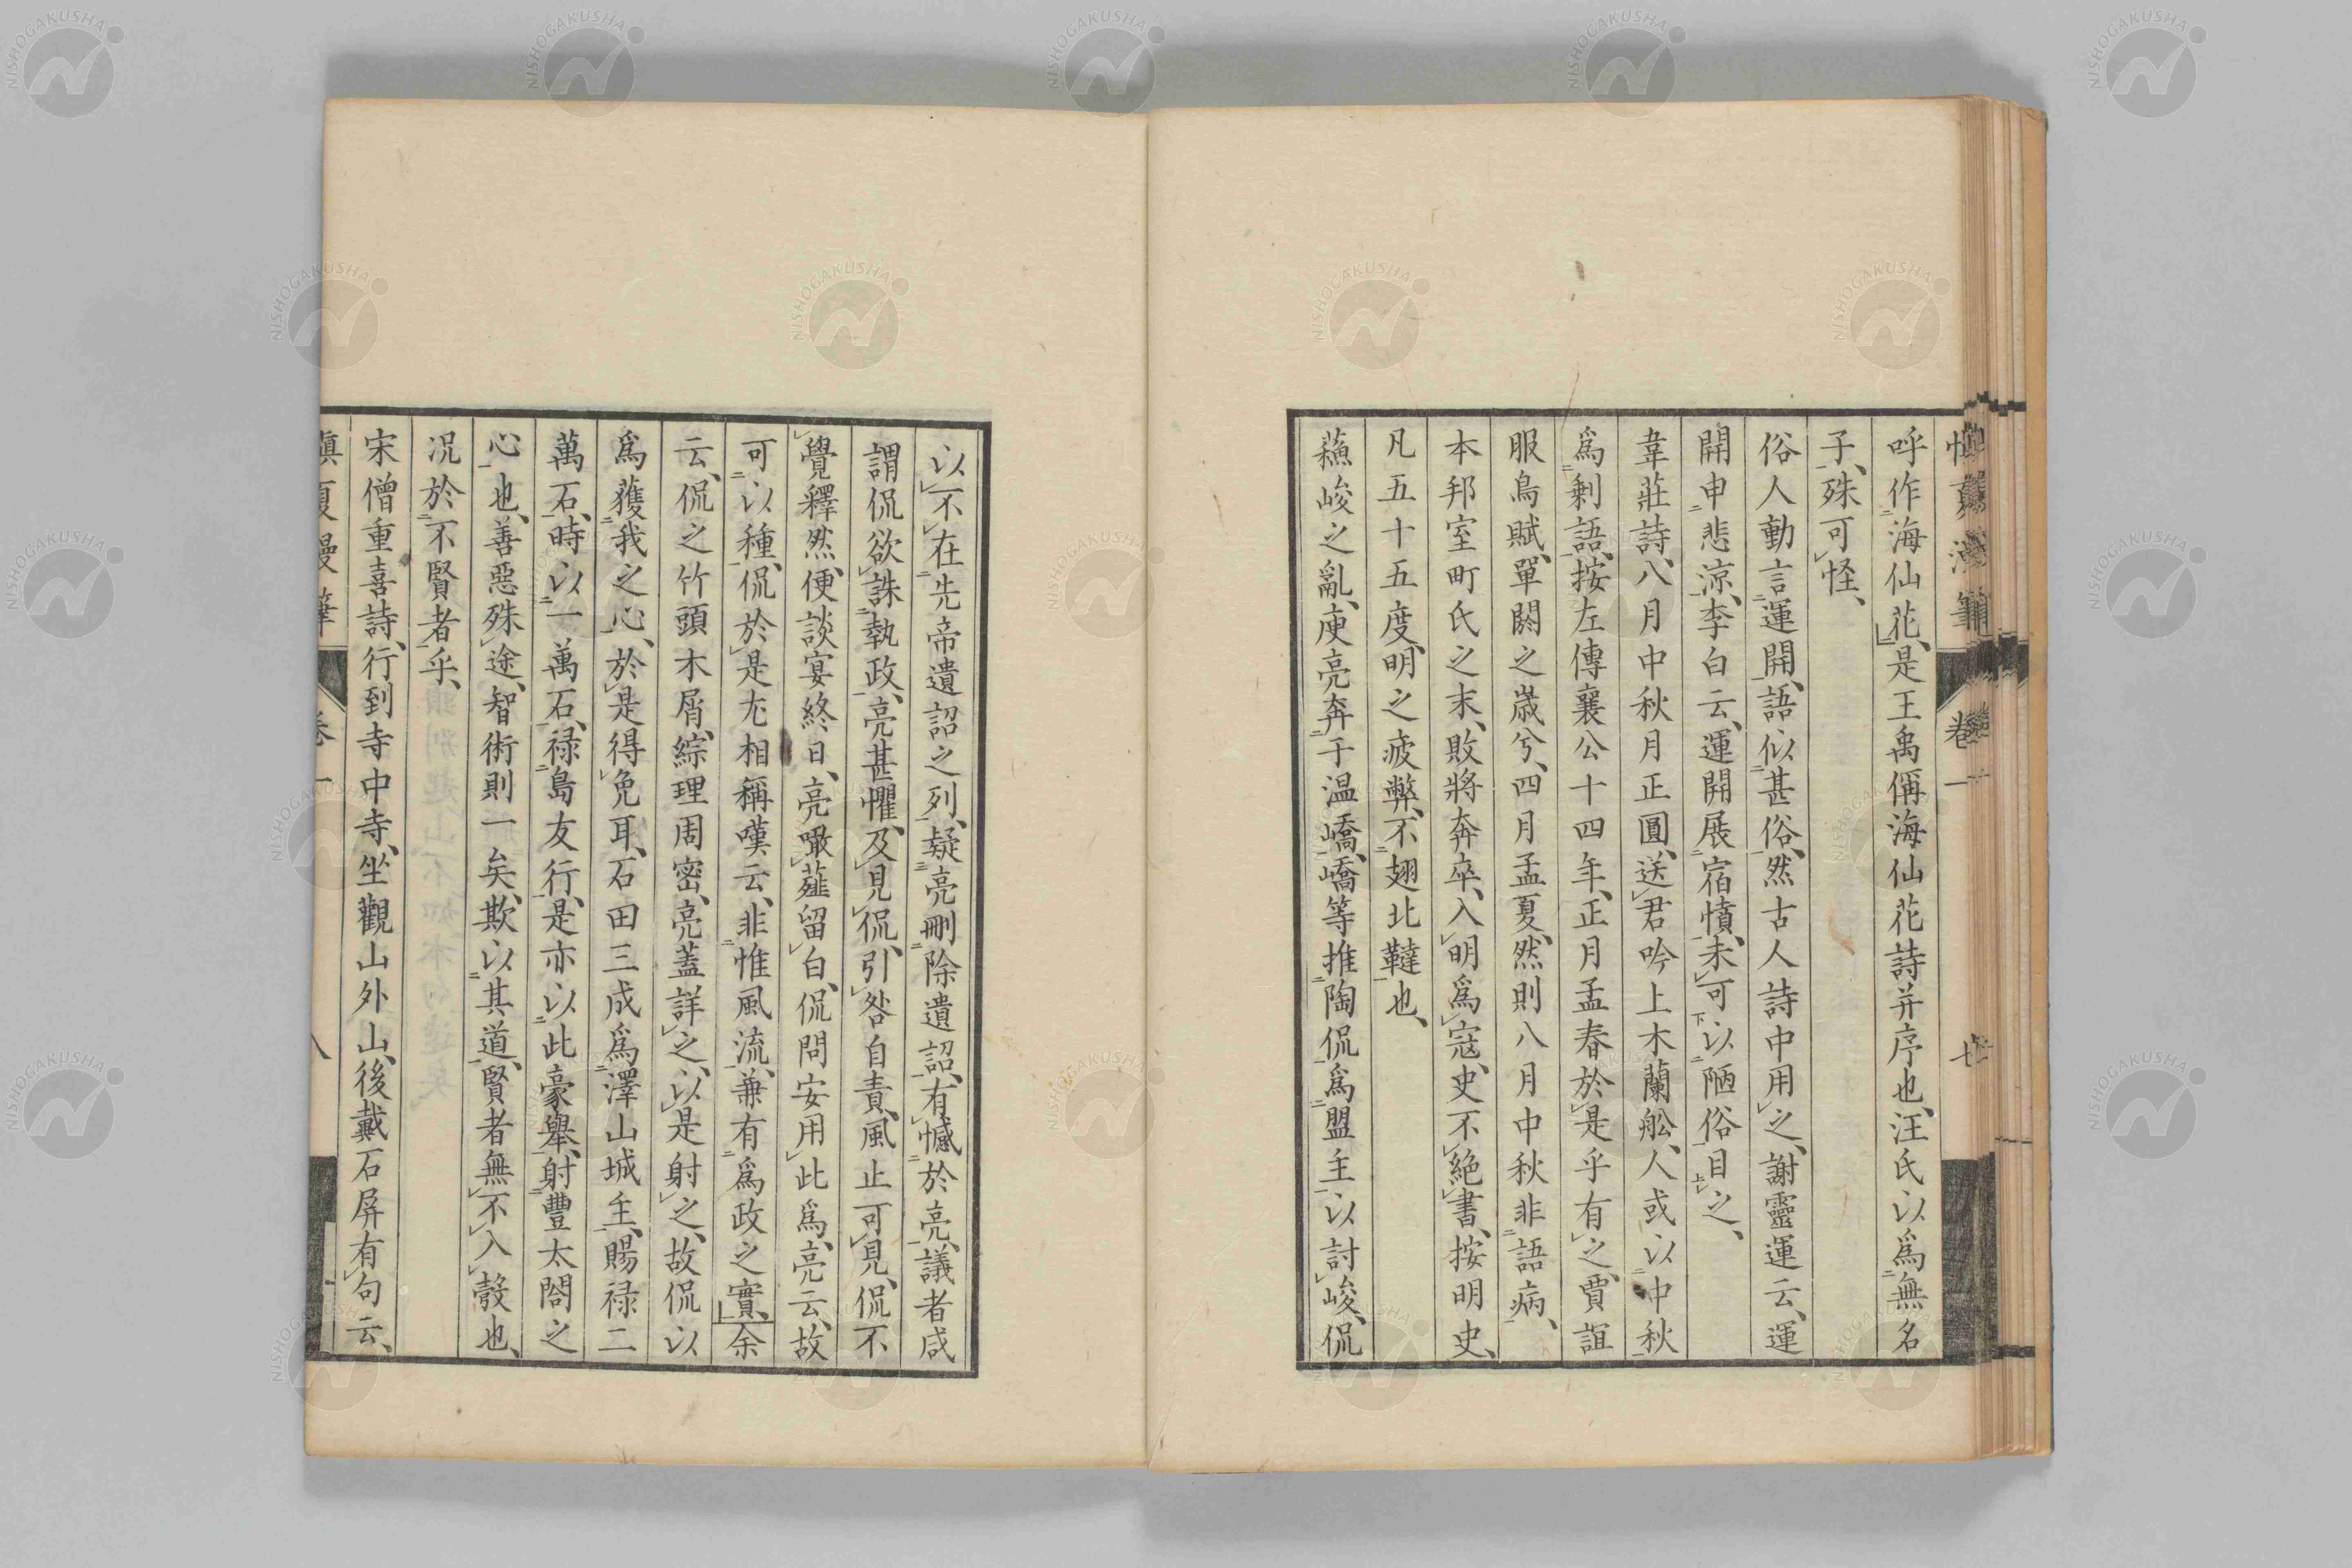 呼作海仙花、是王禹偁海仙花詩并序也、汪氏以爲無名
子、殊可怪、
俗人動言運開、語似甚俗、然古人詩中用之、謝靈運云、運
開申悲涼、李白云、運開展宿憤、未可以陋俗目之、
韋莊詩、八月中秋月正圓、送君吟上木蘭舩、人或以中秋
爲剩語、按左傳襄公十四年、正月孟春於是乎有之、賈誼
服鳥賦、單閼之歳兮、四月孟夏、然則八月中秋非語病、
本邦室町氏之末、敗將奔卒、入明爲寇、史不絶書、按明史、
凡五十五度、明之疲弊、不翅北韃也、
蘓峻之亂、庾亮奔于温嶠、嶠等推陶侃爲盟主、以討峻、侃
以不在先帝遺詔之列、疑亮刪除遺詔、有憾於亮、議者咸
謂侃欲誅執政、亮甚懼、及見侃、引咎自責、風止可見、侃不
覺釋然、便談宴終日、亮噉薤留白、侃問安用此爲、亮云、故
可以種、侃於是尤相稱嘆云、非惟風流、兼有爲政之實、余
云、侃之竹頭木屑、綜理周密、亮蓋詳之、以是射之、故侃以
爲獲我之心、於是得免耳、石田三成爲澤山城主、賜祿二
萬石、時以一萬石、祿島友行、是亦以此豪舉、射豐太閤之
心也、善惡殊途、智術則一矣、欺以其道、賢者無不入彀也、
况於不賢者乎、
宋僧重喜詩、行到寺中寺、坐觀山外山、後戴石屏有句云、
卷一
八
卷一
七
NISHOGAKUSHA